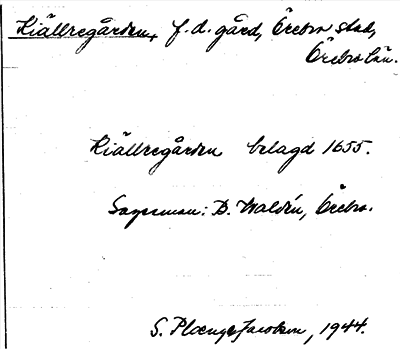 Kiällregården, f.d. gård, Örebro stad,
Örebro län.
Kiällregården belagd 1655.
Sagesman: B. Waldén, Örebro.
S. Plænge Jacobson, 1944.